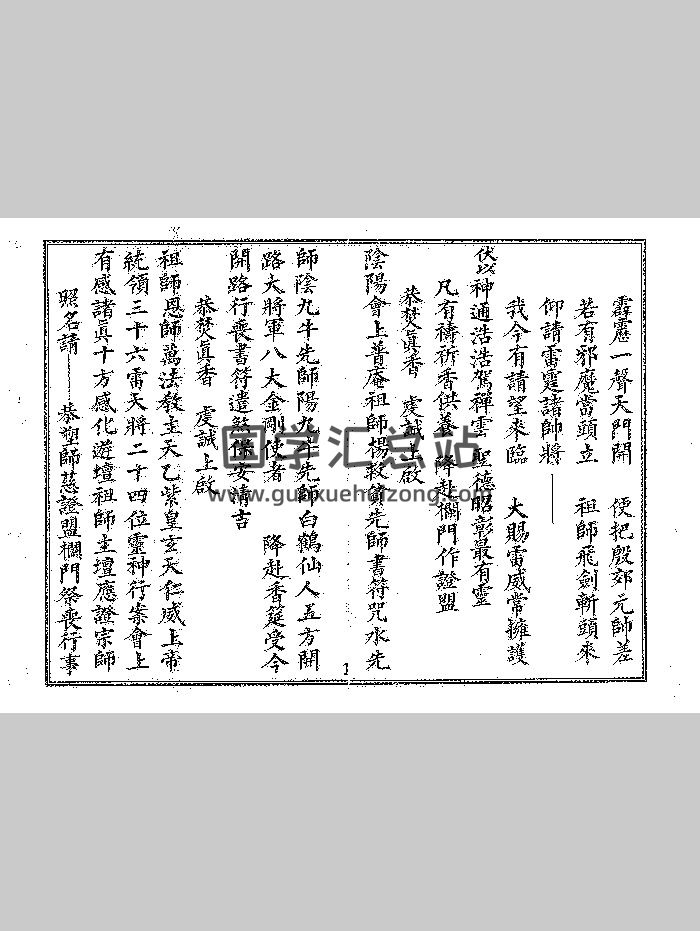 霹靂一聲天門開　便把殷郊元帥差
若有邪魔當頭立　祖師飛劍斬頭來
仰請雷霆諸師將
我今有請望來臨　大賜雷威常擁護
伏以神通浩浩駕禪雲　聖德昭彰最有靈
凡有禱祈香供養　降赴欄門作證盟
恭焚眞香　虔誠上啟
陰陽會上普庵祖師楊救貧先師書符咒水先
師陰九牛先師陽九牛先師白鶴仙人五方開
路大將軍八大金剛使者　降赴香筵受今
開路行喪書符遣煞保安清吉
恭焚眞香　虔誠上啟
祖師恩師萬法教主天乙紫皇玄天仁威上帝
統領三十六雷天將二十四位靈神行案會上
有感諸眞十方感化遊壇祖師主壇應證宗師
照名請——恭望師慈證盟欄門祭喪行事
国学汇总站
www.guoxuehuizong.com
1